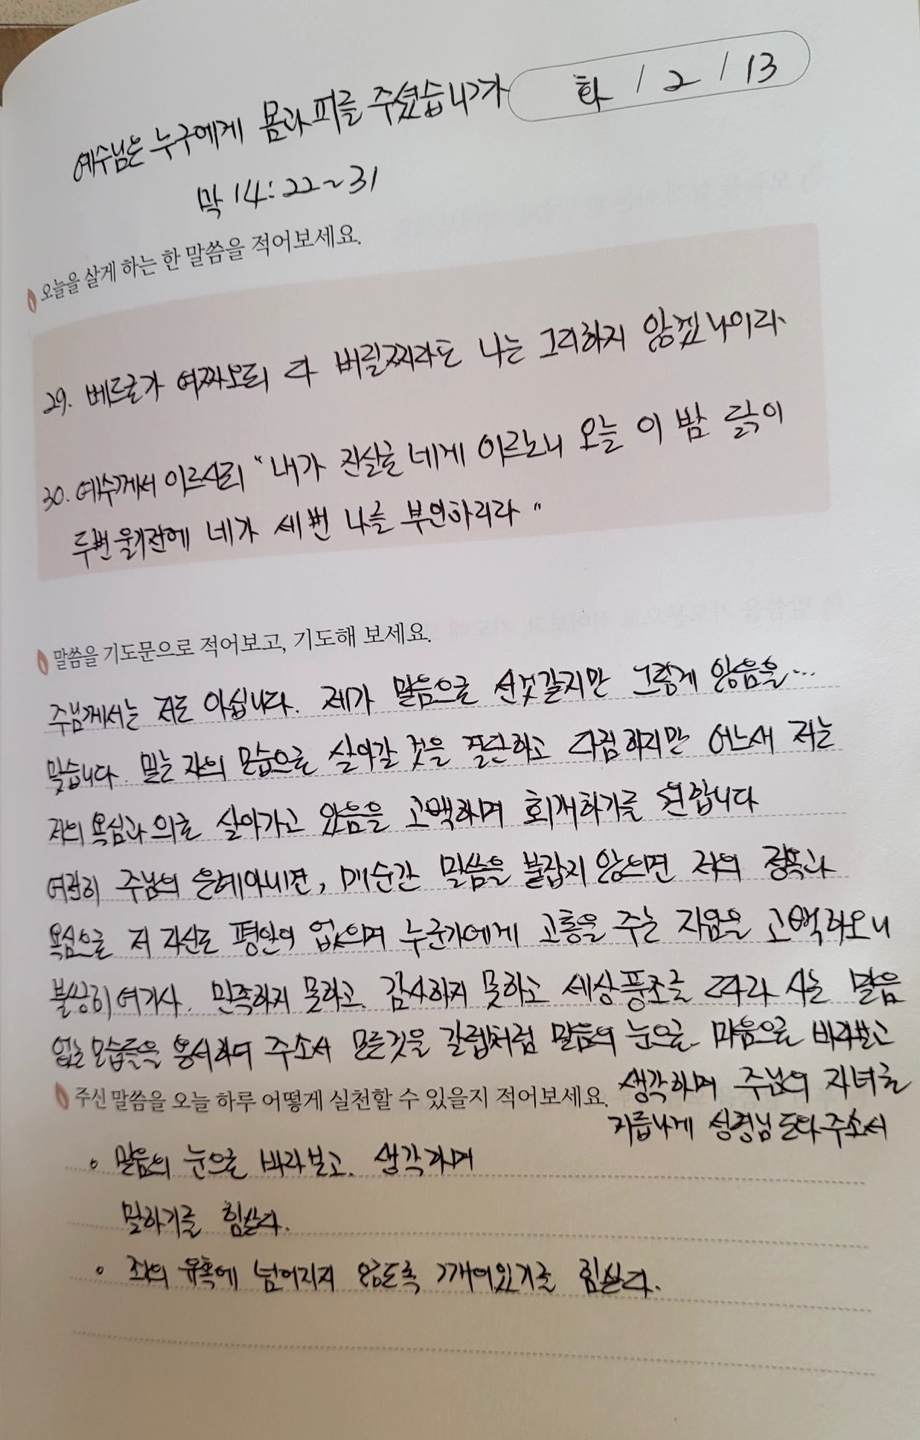 예수님은 누구에게 몸과 피를 주셨습니까
화 / 2 / 13
막 14:22~31
오늘을 살게 하는 한 말씀을 적어보세요.
29. 베드로가 여짜오되 다 버릴찌라도 나는 그리하지 않겠나이다.
30. 예수께서 이르시되 "내가 진실로 네게 이르노니 오늘 이 밤 닭이
두번 울기전에 네가 세번 나를 부인하리라"
말씀을 기도문으로 적어보고, 기도해 보세요.
주님께서는 저도 아십니다. 제가 말씀으로 선것같지만 그렇게 않음을…
맞습니다. 믿는 자의 모습으로 살아갈 것을 결단하고 다짐하지만 어느새 저는
저의 욕심과 의로 살아가고 있음을 고백하며 회개하기를 원합니다
여전히 주님의 은혜아니면, 매순간 말씀을 붙잡지 않으면 저의 정욕과
욕심으로 저 자신도 평안이 없으며 누군가에게 고통을 주는 자임을 고백하오니
불쌍히 여기사. 만족하지 못하고. 감사하지 못하고 세상풍조를 따라 사는 말씀
없는 모습들을 용서하여 주소서 모든것을 갈렙처럼 말씀의 눈으로 마음으로 바라보고
생각하며 주님의 자녀로
주신 말씀을 오늘 하루 어떻게 실천할 수 있을지 적어보세요.
자릅나게 성령님 도와주소서
• 말씀의 눈으로 바라보고. 생각하며
말하기를 힘쓴다.
• 죄의 유혹에 넘어지지 않도록 깨어있기를 힘쓴다.